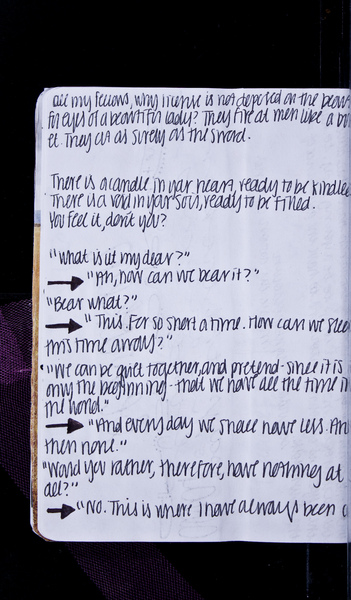 all my fellows, why license is not deposed on the beaut
ful eyes of a beautiful lady? They fire at men like a bu
et. They cut as surely as the sword.
There is a candle in your heart, ready to be kindled
There is a void in your soul, ready to be filled.
You feel it, don't you?
"What is it my dear?"
"Ah, how can we bear it?"
"Bear what?"
"This. For so short a time. How can we sleep
this time away?"
"We can be quiet together, and pretend - since it is
only the beginning - that we have all the time in
the world."
"And every day we shall have less. And
then none."
"Would you rather, therefore, have nothing at
all?"
"No. This is where I have always been c